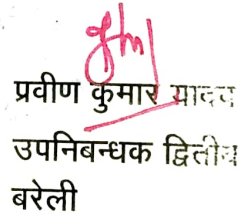 प्रवीण कुमार यादव
उपनिबन्धक द्वितीय
बरेली